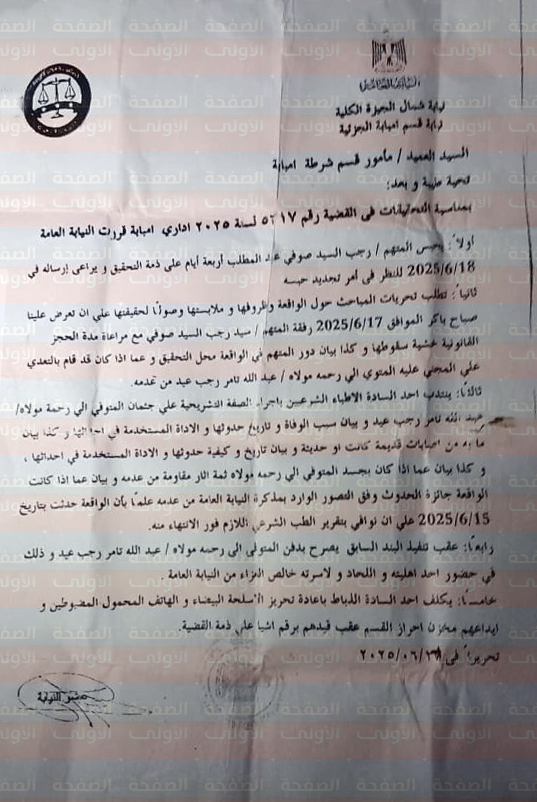 نيابة شمال الجيزة الكلية
نيابة قسم امبابة الجزئية
السيد العميد / مأمور قسم شرطة امبابة
تحية طيبة و بعد:
بمناسبة التحقيقات فى القضية رقم ٥٢١٧ لسنة ٢٠٢٥ اداري امبابة قررت النيابة العامة
أولاً: يحبس المتهم / رجب السيد صوفي عبد المطلب أربعة أيام على ذمة التحقيق و يراعى إرساله في
2025/6/18 للنظر فى أمر تجديد حبسه
ثانياً: تطلب تحريات المباحث حول الواقعة وظروفها و ملابستها وصولًا لحقيقتها علي ان تعرض علينا
صباح باكر الموافق 2025/6/17 رفقة المتهم / سيد رجب السيد صوفي مع مراعاة مدة الحجز
القانونية خشية سقوطها و كذا بيان دور المتهم في الواقعة محل التحقيق و عما اذا كان قد قام بالتعدي
علي المجني عليه المتوي الي رحمه مولاه / عبد الله تامر رجب عيد من عدمه.
ثالثًا: ينتدب احد السادة الاطباء الشرعين باجراء الصفة التشريحية علي جثمان المتوفي الي رحمة مولاه/
عبد الله تامر رجب عيد و بيان سبب الوفاة و تاريخ حدوثها و الاداة المستخدمة في احداثها و كذا بيان
ما به من اصابات قديمة كانت او حديثة و بيان تاريخ و كيفية حدوثها و الاداة المستخدمة في احداثها ،
و كذا بيان عما اذا كان بجسد المتوفي الي رحمه مولاه ثمة اثار مقاومة من عدمه و بيان عما اذا كانت
الواقعة جائزة الحدوث وفق التصور الوارد بمذكرة النيابة العامة من عدمه علمًا بأن الواقعة حدثت بتاريخ
2025/6/15 علي ان نوافي بتقرير الطب الشرعي اللازم فور الانتهاء منه.
رابعًا: عقب تنفيذ البند السابق يصرح بدفن المتوفى الى رحمه مولاه / عبد الله تامر رجب عيد و ذلك
في حضور احد اهليته و اللحاد و لاسرته خالص العزاء من النيابة العامة .
خامسًا: يكلف احد السادة الذباط باعادة تحريز الاسلحة البيضاء و الهاتف المحمول المضبوطين و
إيداعهم مخزن احراز القسم عقب قيدهم برقم اشيا على ذمة القضية.
تحريراً فى /٢٠٢٥/٠٦
مدير النيابة
الصفحة الأولى